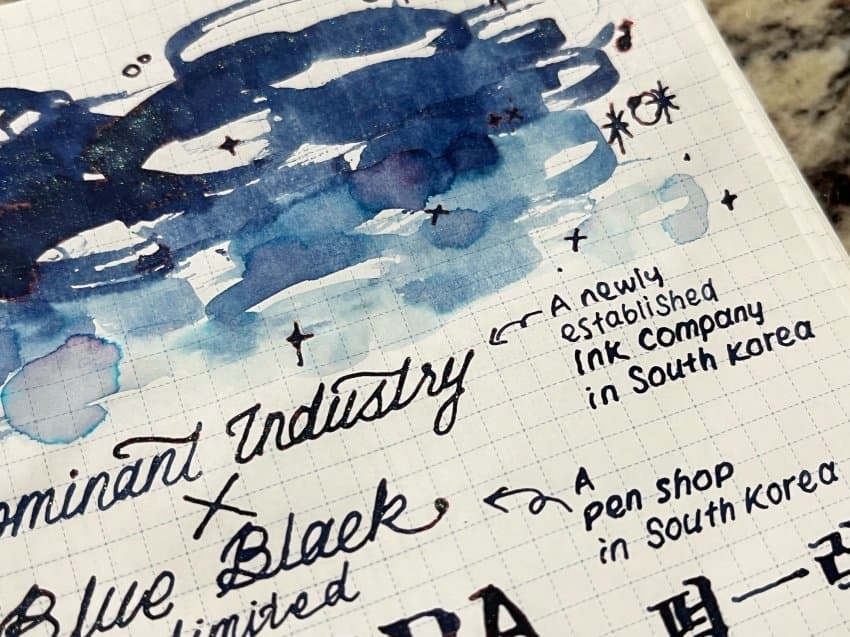 A newly
established
Ink Company
in South Korea
ominant Industry
X
Blue Black
A
pen shop
in South Korea
limited